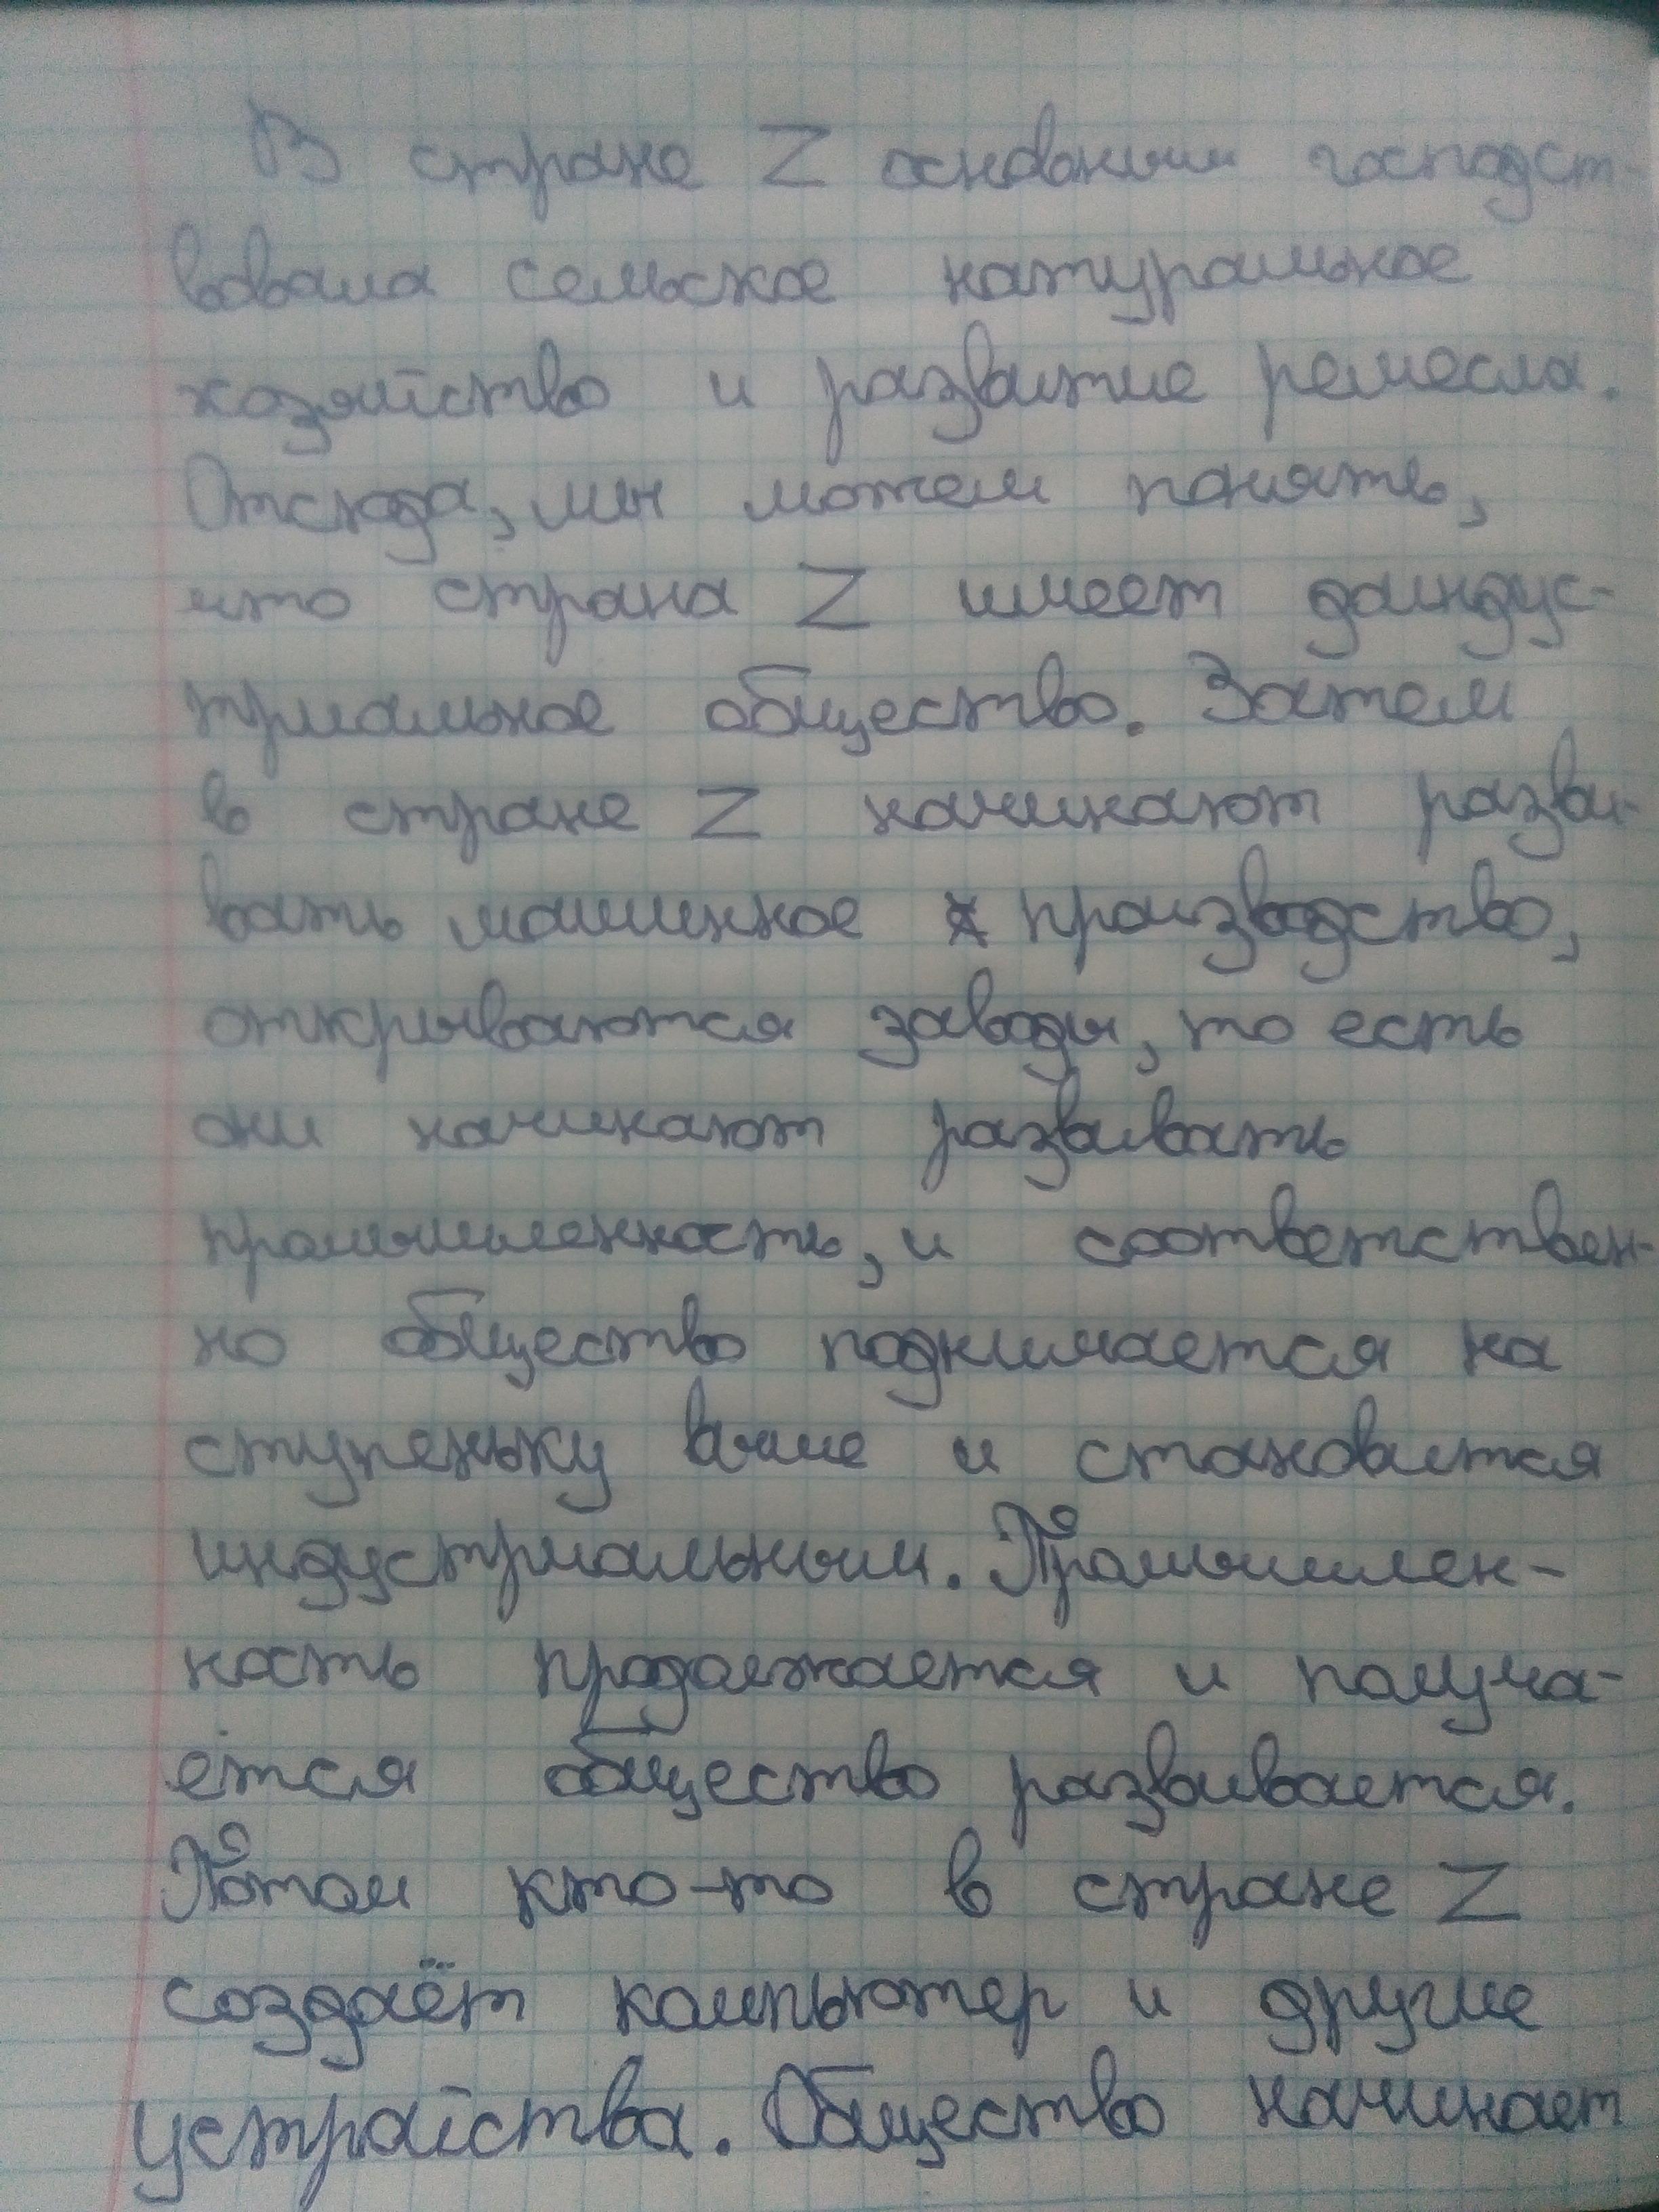 В стране Z основным господст-
вовала сельское натуральное
хозяйство и развитие ремесла.
Отсюда, мы можем понять,
что страна Z имеет доиндус-
триальное общество. Затем
в стране Z начинают разви-
вать машинное производство,
открываются заводы, то есть
они начинают развивать
промышленность, и соответствен-
но общество поднимается на
ступеньку выше и становится
индустриальным. Промышлен-
ность продолжается и получа-
ется общество развивается.
Потом кто-то в стране Z
создаёт компьютер и другие
устройства. Общество начинает